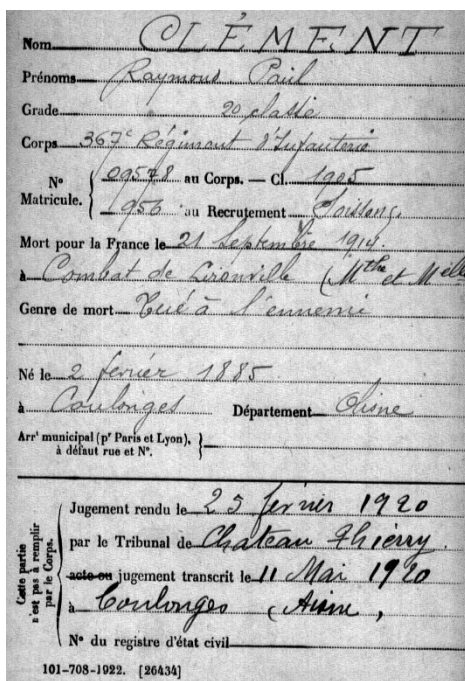 Nom CLÉMENT
Prénoms Raymond Paul
Grade 2e classe
Corps 367e Régiment d'Infanterie
No Matricule. { 09578 au Corps. — Cl. 1905
1956 au Recrutement Soissons
Mort pour la France le 21 Septembre 1914.
à Combat de Lironville (Mthe et Mlle
Genre de mort Tué à l'ennemi
Né le 2 février 1885
à Coulonges Département Aisne
Arrt municipal (pr Paris et Lyon), à défaut rue et No. }
Cette partie n'est pas à remplir par le Corps.
Jugement rendu le 25 février 1920
par le Tribunal de Chateau Thierry.
acte ou jugement transcrit le 11 Mai 1920
à Coulonges (Aisne,
No du registre d'état civil
101-708-1922. [26434]